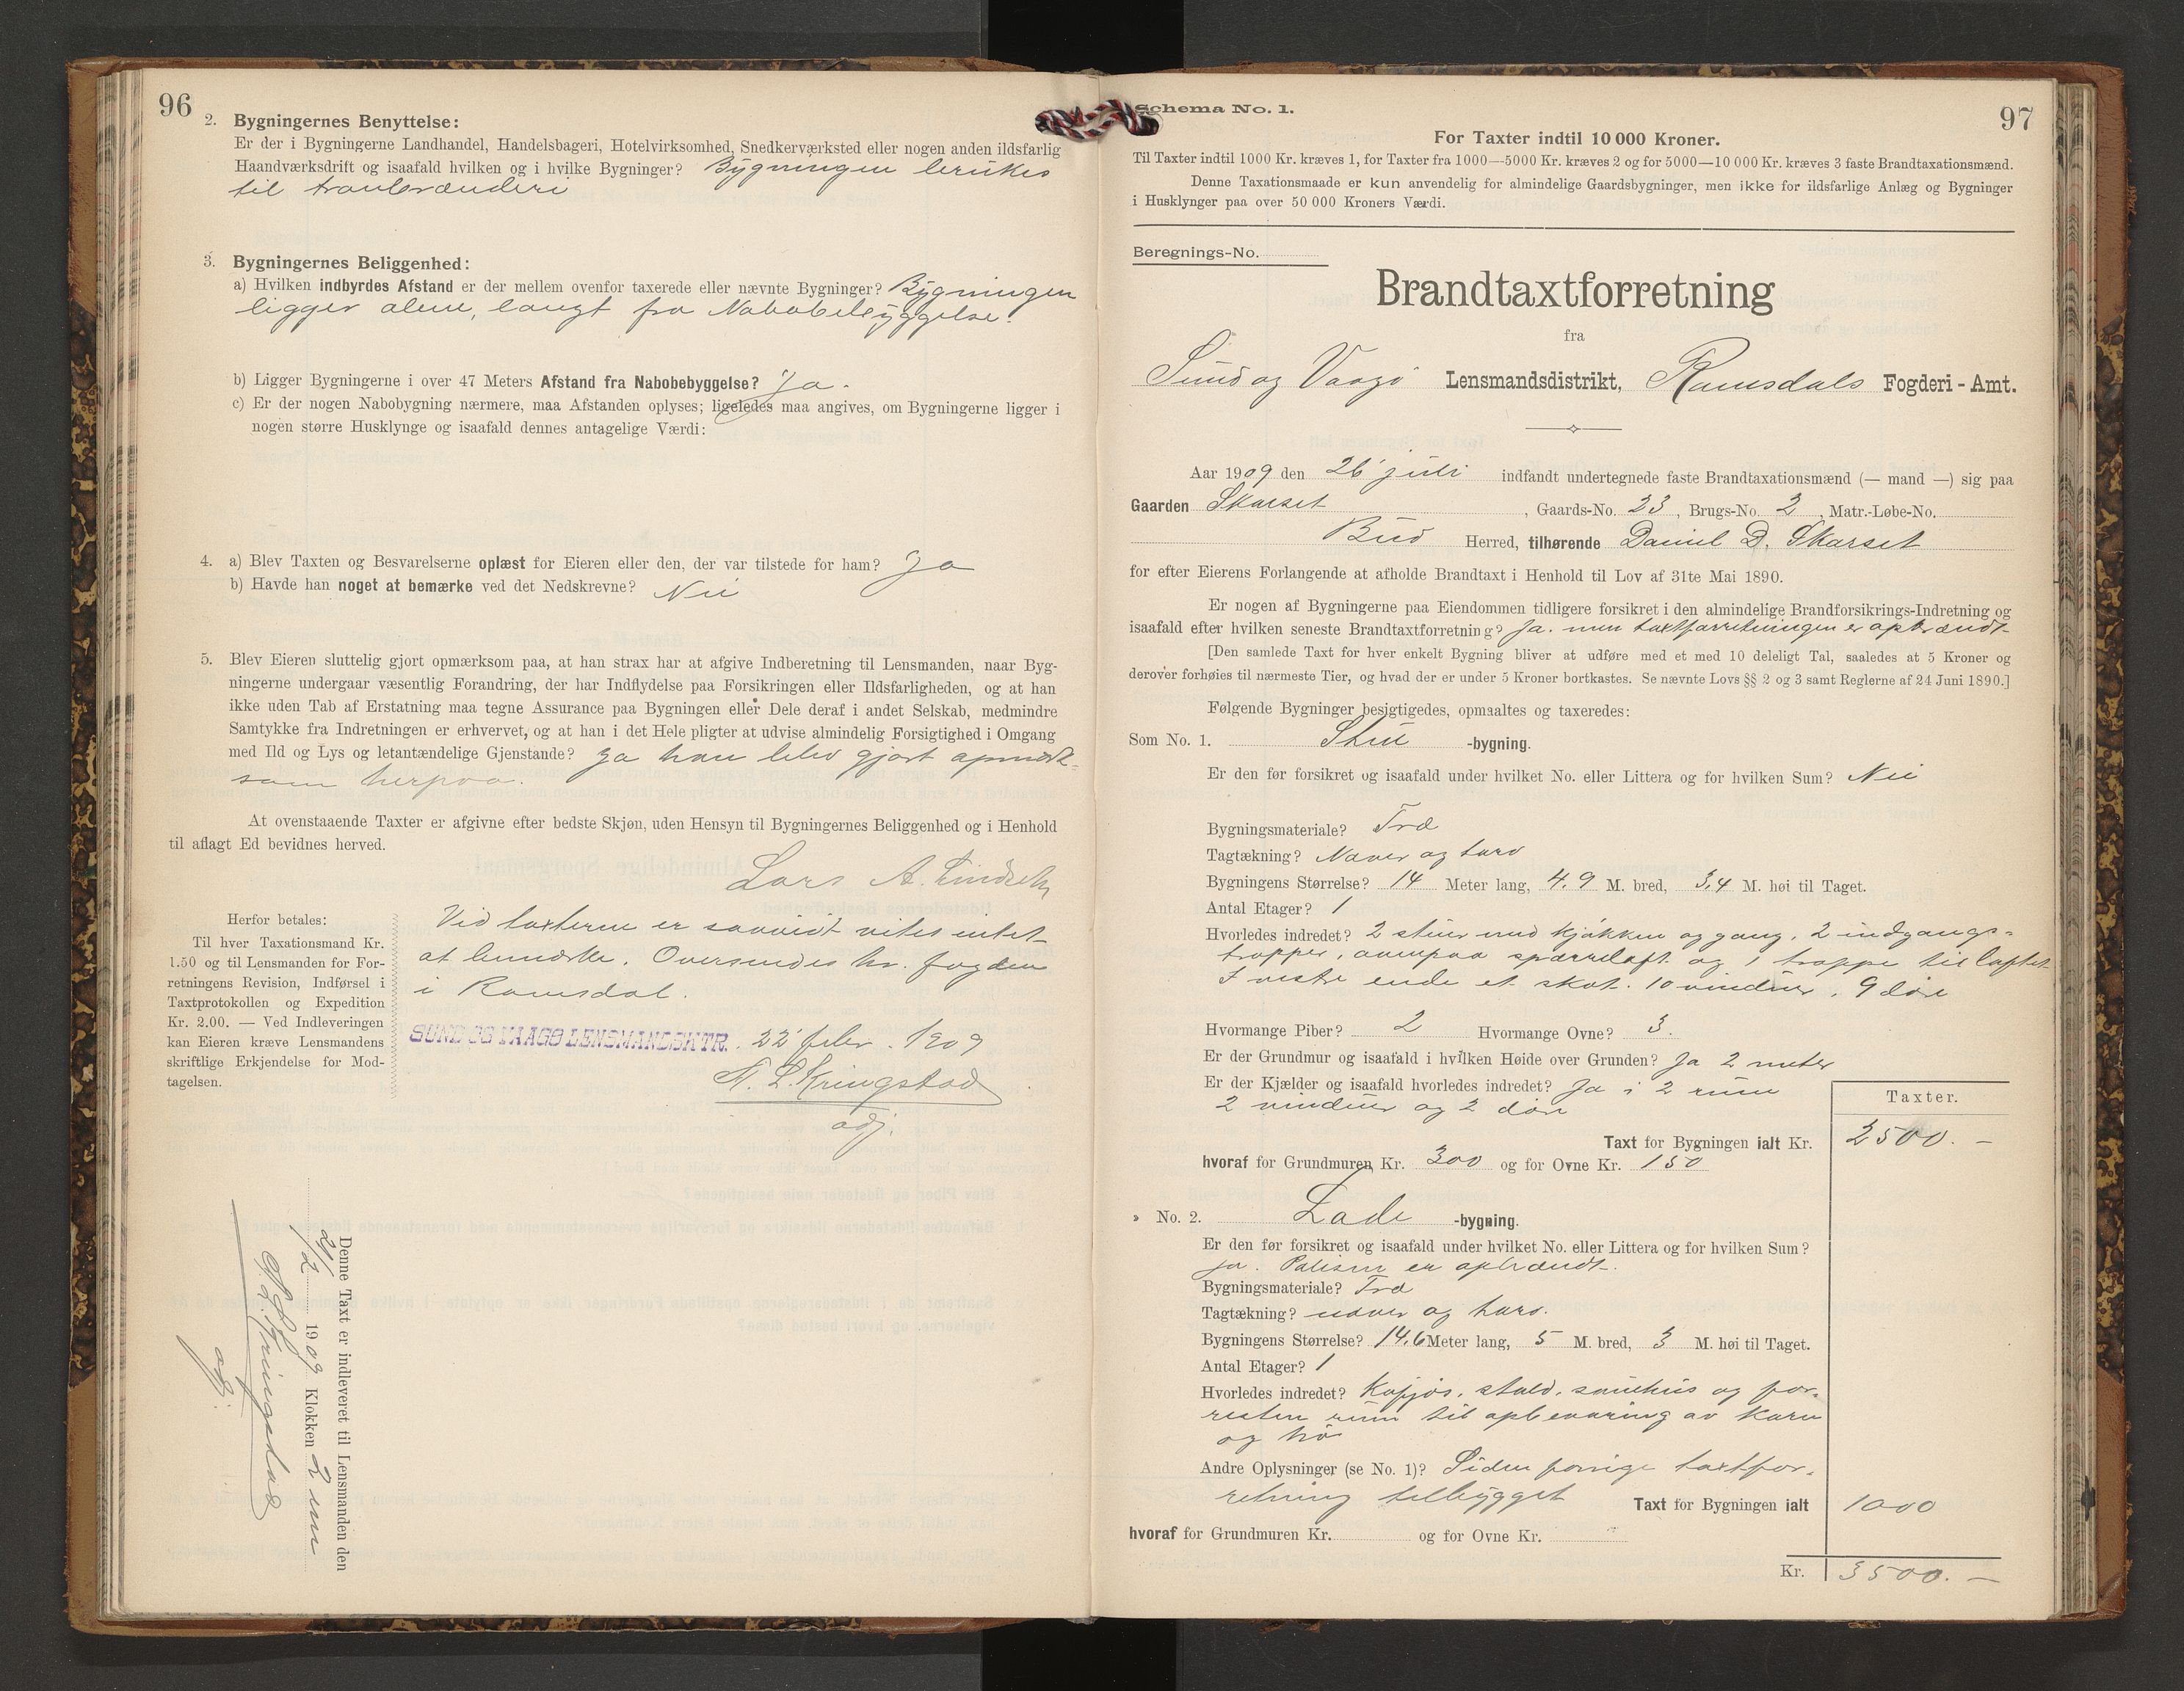 96
2. Bygningernes Benyttelse:
Er der i Bygningerne Landhandel, Handelsbageri, Hotelvirksomhed, Snedkerværksted eller nogen anden ildsfarlig
Haandværksdrift og isaafald hvilken og i hvilke Bygninger? Bygningen brukes
til tranbrænderi
3. Bygningernes Beliggenhed:
a) Hvilken indbyrdes Afstand er der mellem ovenfor taxerede eller nævnte Bygninger? Bygningen
ligger alene, langt fra Nabobebyggelse.
b) Ligger Bygningerne i over 47 Meters Afstand fra Nabobebyggelse? Ja.
c) Er der nogen Nabobygning nærmere, maa Afstanden oplyses; ligeledes maa angives, om Bygningerne ligger i
nogen større Husklynge og isaafald dennes antagelige Værdi:
4. a) Blev Taxten og Besvarelserne oplæst for Eieren eller den, der var tilstede for ham? Ja
b) Havde han noget at bemærke ved det Nedskrevne? Nei
5. Blev Eieren sluttelig gjort opmærksom paa, at han strax har at afgive Indberetning til Lensmanden, naar Byg-
ningerne undergaar væsentlig Forandring, der har Indflydelse paa Forsikringen eller Ildsfarligheden, og at han
ikke uden Tab af Erstatning maa tegne Assurance paa Bygningen eller Dele deraf i andet Selskab, medmindre
Samtykke fra Indretningen er erhvervet, og at han i det Hele pligter at udvise almindelig Forsigtighed i Omgang
med Ild og Lys og letantændelige Gjenstande? Ja han blev gjort opmærk-
som herpaa.
At ovenstaaende Taxter er afgivne efter bedste Skjøn, uden Hensyn til Bygningernes Beliggenhed og i Henhold
til aflagt Ed bevidnes herved.
Lars A. Lindseth
Herfor betales:
Til hver Taxationsmand Kr.
1.50 og til Lensmanden for For-
retningens Revision, Indførsel i
Taxtprotokollen og Expedition
Kr. 2.00. — Ved Indleveringen
kan Eieren kræve Lensmandens
skriftlige Erkjendelse for Mod-
tagelsen.
Ved taxterne er saavidt vites intet
at bemærke. Oversendes hr. fogden
i Romsdal.
SUND OG VAAGØ LENSMANDSKTR. 22' febr. 1909
A. L. Kringstad
adj.
Denne Taxt er indleveret til Lensmanden den
21/2 1909 Klokken 2 em
A. L. Kringstad
adj.
97
Schema No. 1.
For Taxter indtil 10 000 Kroner.
Til Taxter indtil 1000 Kr. kræves 1, for Taxter fra 1000—5000 Kr. kræves 2 og for 5000—10 000 Kr. kræves 3 faste Brandtaxationsmænd.
Denne Taxationsmaade er kun anvendelig for almindelige Gaardsbygninger, men ikke for ildsfarlige Anlæg og Bygninger
i Husklynger paa over 50 000 Kroners Værdi.
Beregnings-No.
Brandtaxtforretning
fra
Sund og Vaagø Lensmandsdistrikt, Romsdals Fogderi - Amt.
Aar 1909 den 26' juli indfandt undertegnede faste Brandtaxationsmænd (— mand —) sig paa
Gaarden Skarset, Gaards-No. 23, Brugs-No. 2, Matr.-Løbe-No.
Bud Herred, tilhørende Daniel D. Skarset
for efter Eierens Forlangende at afholde Brandtaxt i Henhold til Lov af 31te Mai 1890.
Er nogen af Bygningerne paa Eiendommen tidligere forsikret i den almindelige Brandforsikrings-Indretning og
isaafald efter hvilken seneste Brandtaxtforretning? Ja. men taxtforretningen er opbrændt
[Den samlede Taxt for hver enkelt Bygning bliver at udføre med et med 10 deleligt Tal, saaledes at 5 Kroner og
derover forhøies til nærmeste Tier, og hvad der er under 5 Kroner bortkastes. Se nævnte Lovs §§ 2 og 3 samt Reglerne af 24 Juni 1890.]
Følgende Bygninger besigtigedes, opmaaltes og taxeredes:
Som No. 1. Stue -bygning.
Er den før forsikret og isaafald under hvilket No. eller Littera og for hvilken Sum? Nei
Bygningsmateriale? Træ
Tagtækning? Næver og torv
Bygningens Størrelse? 14 Meter lang, 4.9 M. bred, 3,4 M. høi til Taget.
Antal Etager? 1
Hvorledes indredet? 2 stuer med kjøkken og gang, 2 indgangs-
trapper, ovenpaa sparreloft og 1 trappe til loftet
I vestre ende et skot. 10 vinduer, 9 døre
Hvormange Piber? 2 Hvormange Ovne? 3.
Er der Grundmur og isaafald i hvilken Høide over Grunden? Ja 2 meter
Er der Kjælder og isaafald hvorledes indredet? Ja i 2 rum
2 vinduer og 2 døre
Taxter.
Taxt for Bygningen ialt Kr. 2500. —
hvoraf for Grundmuren Kr. 300 og for Ovne Kr. 150
» No. 2. Lade -bygning.
Er den før forsikret og isaafald under hvilket No. eller Littera og for hvilken Sum?
Ja. Polisen er opbrændt.
Bygningsmateriale? Træ
Tagtækning? næver og torv.
Bygningens Størrelse? 14,6 Meter lang, 5 M. bred, 3 M. høi til Taget.
Antal Etager? 1
Hvorledes indredet? Kofjøs, stald, sauehus og for-
resten rum til opbevaring av korn
og hø
Andre Oplysninger (se No. 1)? Siden forrige taxtfor-
retning tilbygget Taxt for Bygningen ialt 1000
hvoraf for Grundmuren Kr. og for Ovne Kr.
Kr. 3500. —